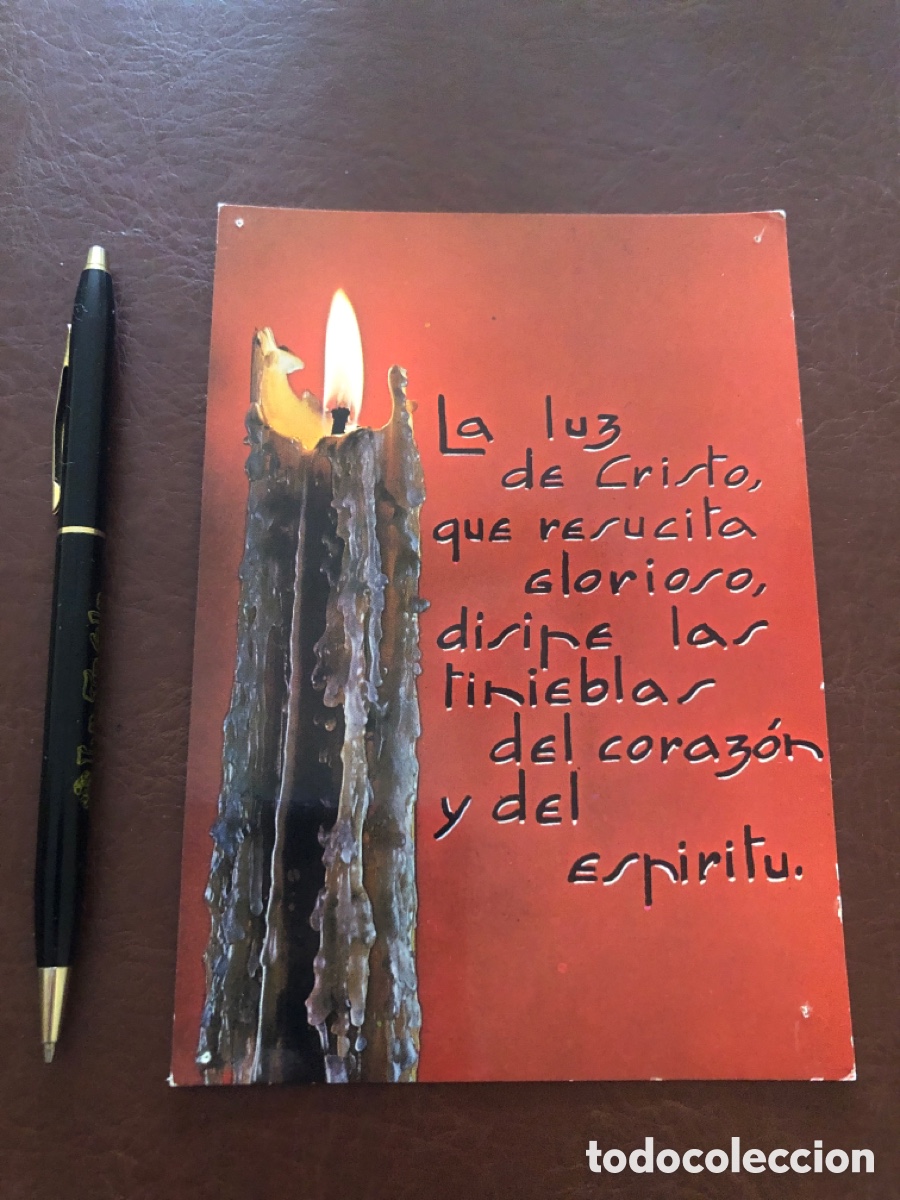 La luz
de Cristo,
que resucita
glorioso,
disipe las
tinieblas
del corazón
y del
espiritu.
todocoleccion